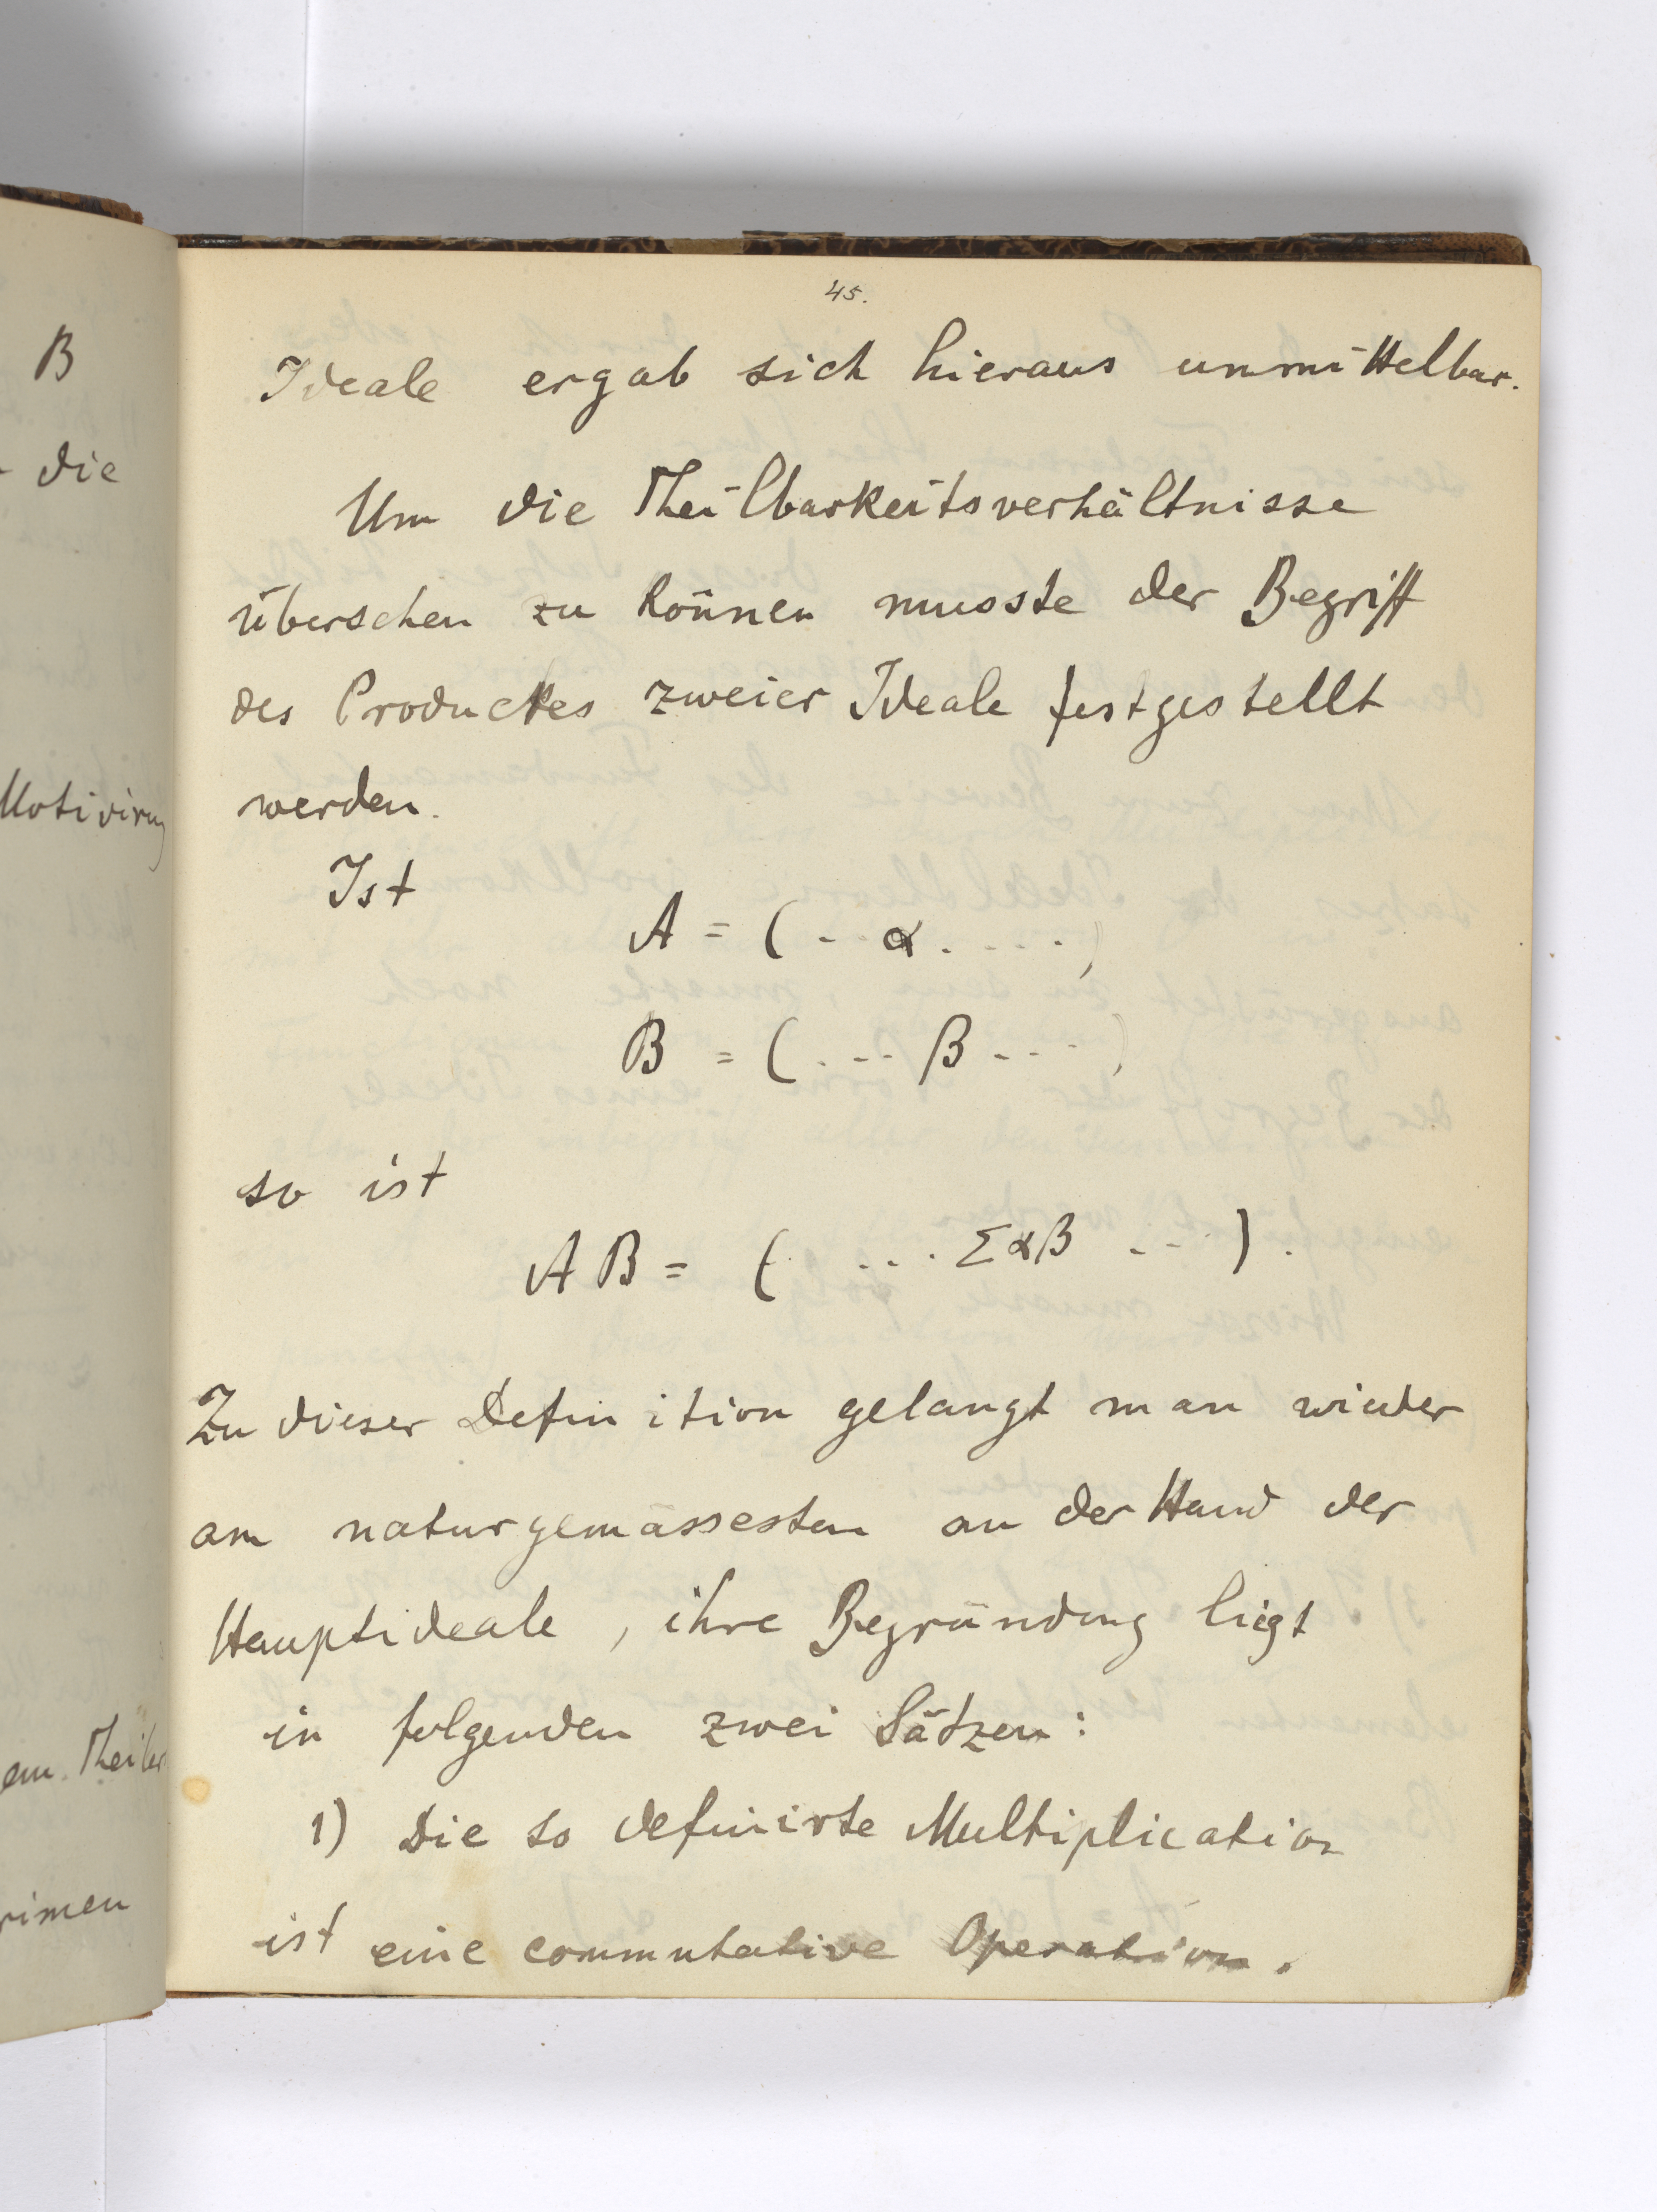 45.
Ideale ergab sich hieraus unmittelbar.
Um die Theilbarkeitsverhältnisse
übersehen zu können musste der Begriff
des Productes zweier Ideale festgestellt
werden.
Ist
A = ( . . α . . . . . )
B = ( . . . β . . . . )
so ist
AB = ( . . . . Σαβ . . . . ) .
Zu dieser Definition gelangt man wieder
am naturgemässesten an der Hand der
Hauptideale, ihre Begründung liegt
in folgenden zwei Sätzen:
1) Die so definirte Multiplication
ist eine commutative Operation.
B
die
Motivirung
Theiler